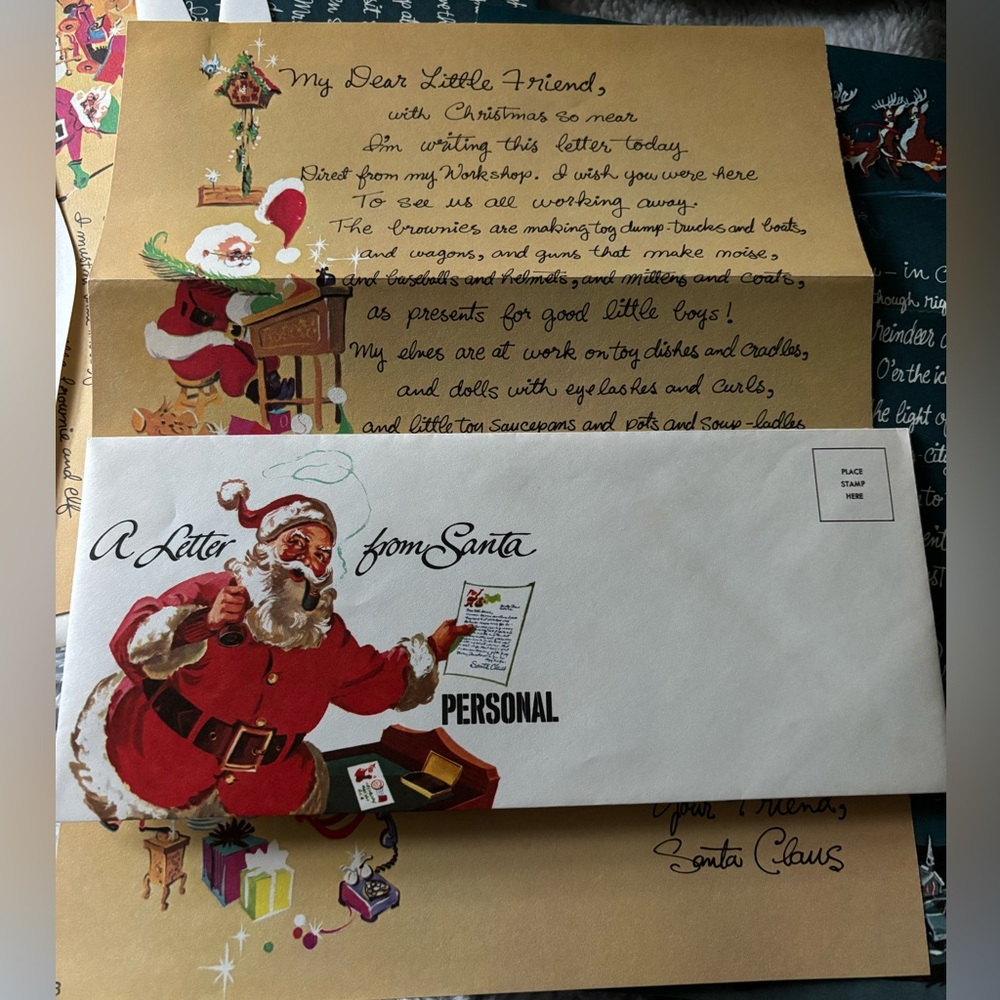 My Dear Little Friend,
with Christmas so near
I'm writing this letter today
Direct from my Workshop. I wish you were here
To see us all working away.
The brownies are making toy dump-trucks and boats,
and wagons, and guns that make noise,
and baseballs and helmets, and mittens and coats,
as presents for good little boys!
My elves are at work on toy dishes and cradles,
and dolls with eyelashes and curls,
and little toy saucepans and pots and soup-ladles
A Letter from Santa
PLACE
STAMP
HERE
PERSONAL
Santa Claus
Your Friend,
Santa Claus
brownie and elf
I must
in C
though rig
reindeer
O'er the ic
he light o
-city
to